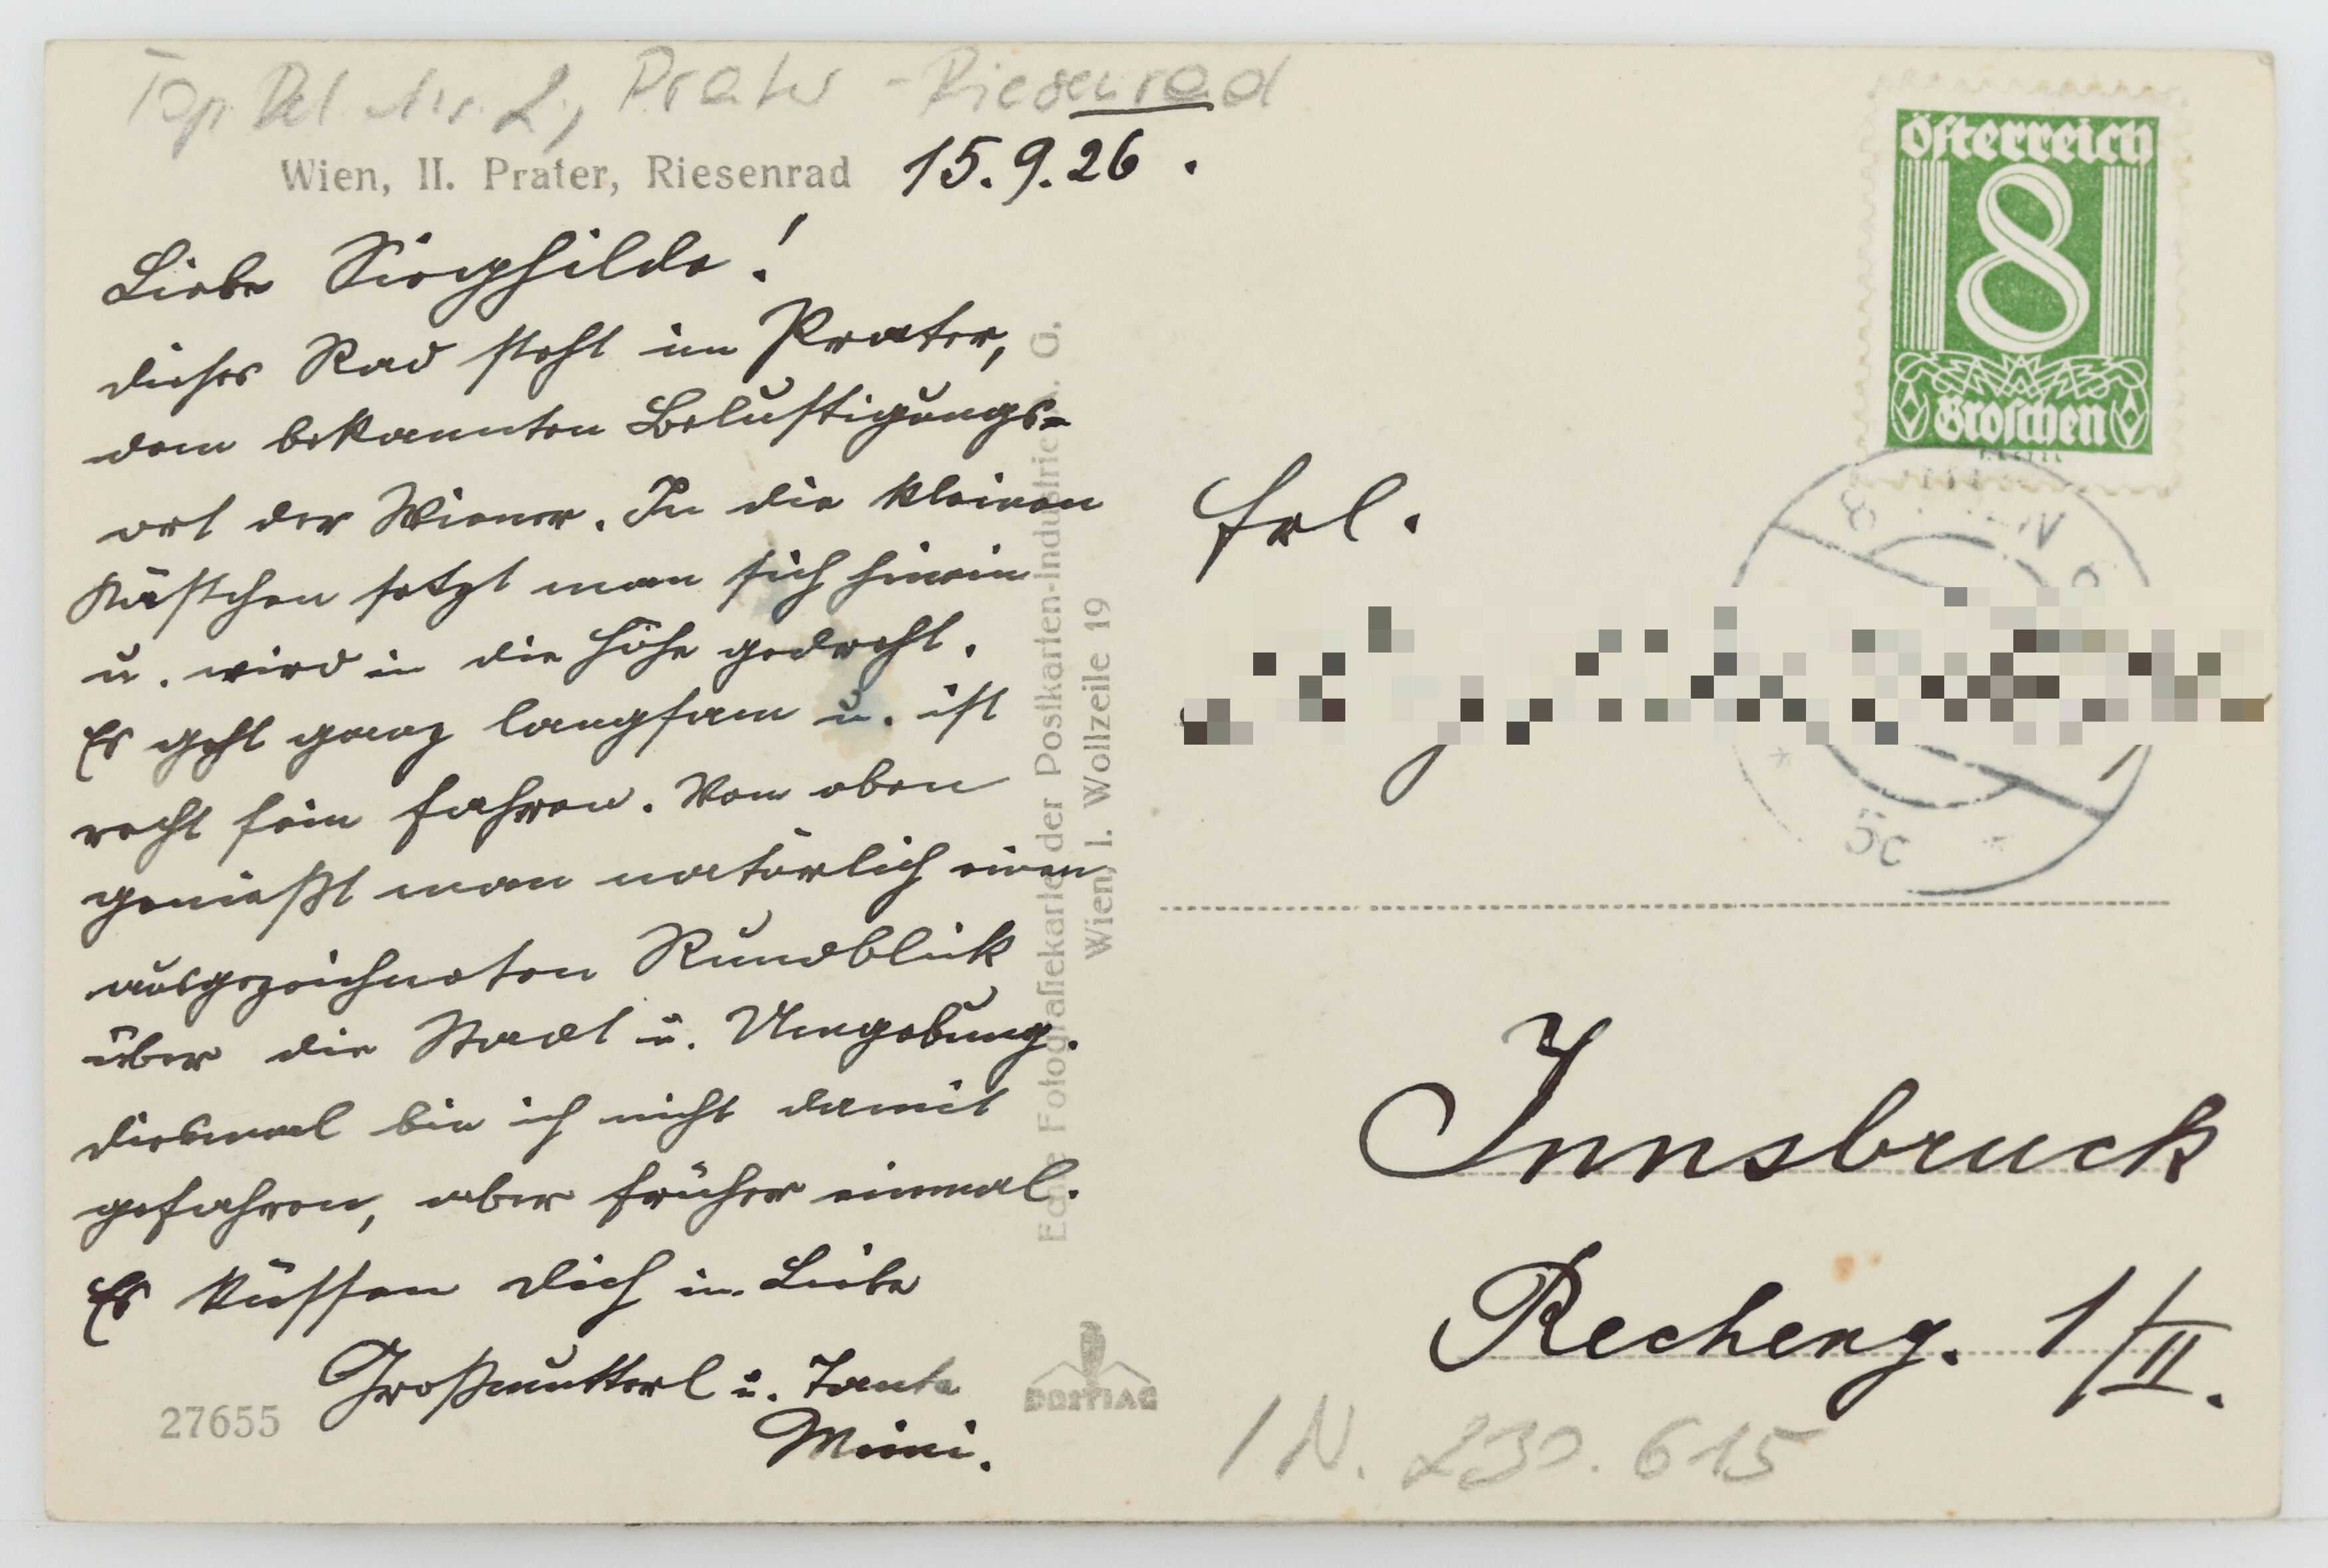 Top. Bel. Nr. 2, Prater - Riesenrad
Wien, II. Prater, Riesenrad 15.9.26.
Liebe Sieghilde!
dieses Rad steht im Prater,
dem bekannten Belustigungs-
ort der Wiener. In die kleinen
Kästchen setzt man sich hinein
u. wird in die Höhe gedreht.
Es geht ganz langsam u. ist
recht fein fahren. Von oben
genießt man natürlich einen
ausgezeichneten Rundblick
über die Stadt u. Umgebung.
diesmal bin ich nicht damit
gefahren, aber früher einmal.
Es küssen dich in Liebe
Großmutterl u. Tante
Mimi.
27655
Fotografiekarte der Postkarten-Industrie A. G.
Wien, I. Wollzeile 19
POSTIAG
Österreich
8
Groschen
Frl.
Innsbruck
Recheng. 1/II.
IN. 230.615